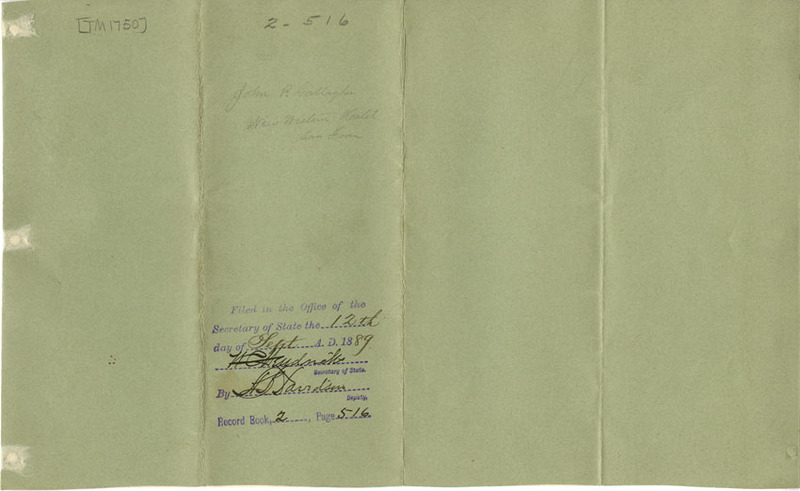 [TM1750]
2 - 516
John R Gallagher
New Western Hotel
San Fran
Filed in the Office of the
Secretary of State the 12th
day of Sept A. D. 1889
W C Hendricks
Secretary of State.
By Davidson
Deputy.
Record Book, 2, Page 516